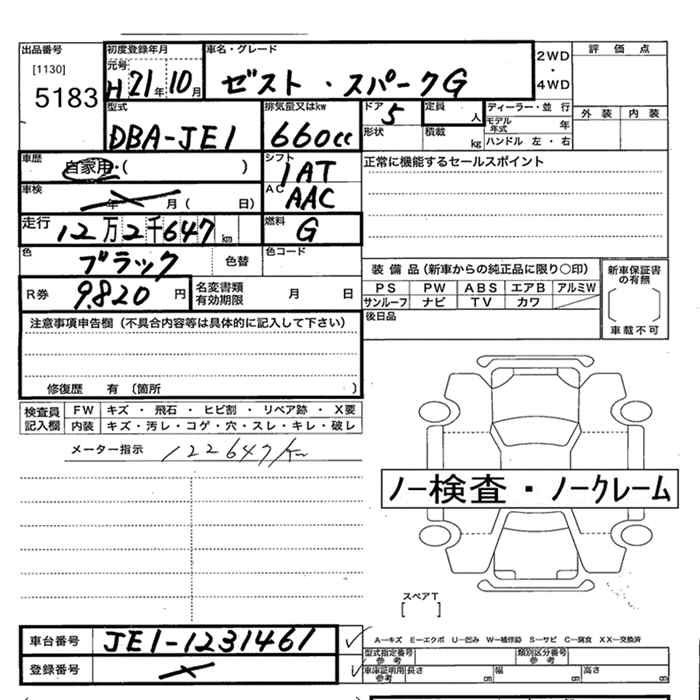 出品番号 初度登録年月 車名・グレード 評価点
[1130] 元号 2WD
5183 H21年10月 ゼスト・スパークG ・ 4WD
型式 排気量又はkw ドア 定員 ディーラー・並行 外装 内装
DBA-JE1 660cc 5 人 モデル年式 年
形状 積載 kg ハンドル 左・右
車歴 自家用・( ) シフト 1AT 正常に機能するセールスポイント
車検 年 月 ( 日) AC AAC
走行 12万2千647km 燃料 G
色 ブラック 色替 色コード
装備品(新車からの純正品に限り○印) 新車保証書の有無
R券 9.820円 名変書類有効期限 月 日 PS PW ABS エアB アルミW
サンルーフ ナビ TV カワ
後日品 車載不可
注意事項申告欄(不具合内容等は具体的に記入して下さい)
修復歴 有(箇所 )
検査員記入欄 FW キズ・飛石・ヒビ割・リペア跡・X要
内装 キズ・汚レ・コゲ・穴・スレ・キレ・破レ
メーター指示 122647km
ノー検査・ノークレーム
スペアT
[ ]
車台番号 JE1-1231461 A―キズ E―エクボ U―凹み W―補修跡 S―サビ C―腐食 XX―交換済
型式指定番号 参考 類別区分番号 参考
登録番号 車庫証明用 参考 長さ cm 幅 cm 高さ cm